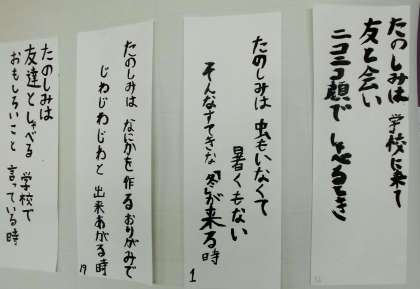 たのしみは 学校に来て
友と会い
ニコニコ顔で しゃべるとき
たのしみは 虫もいなくて
暑くもない
そんなすてきな 冬が来る時
1
たのしみは なにかを作る おりがみで
じわじわじわと 出来あがる時
19
たのしみは
友達としゃべる 学校で
おもしろいこと 言っている時